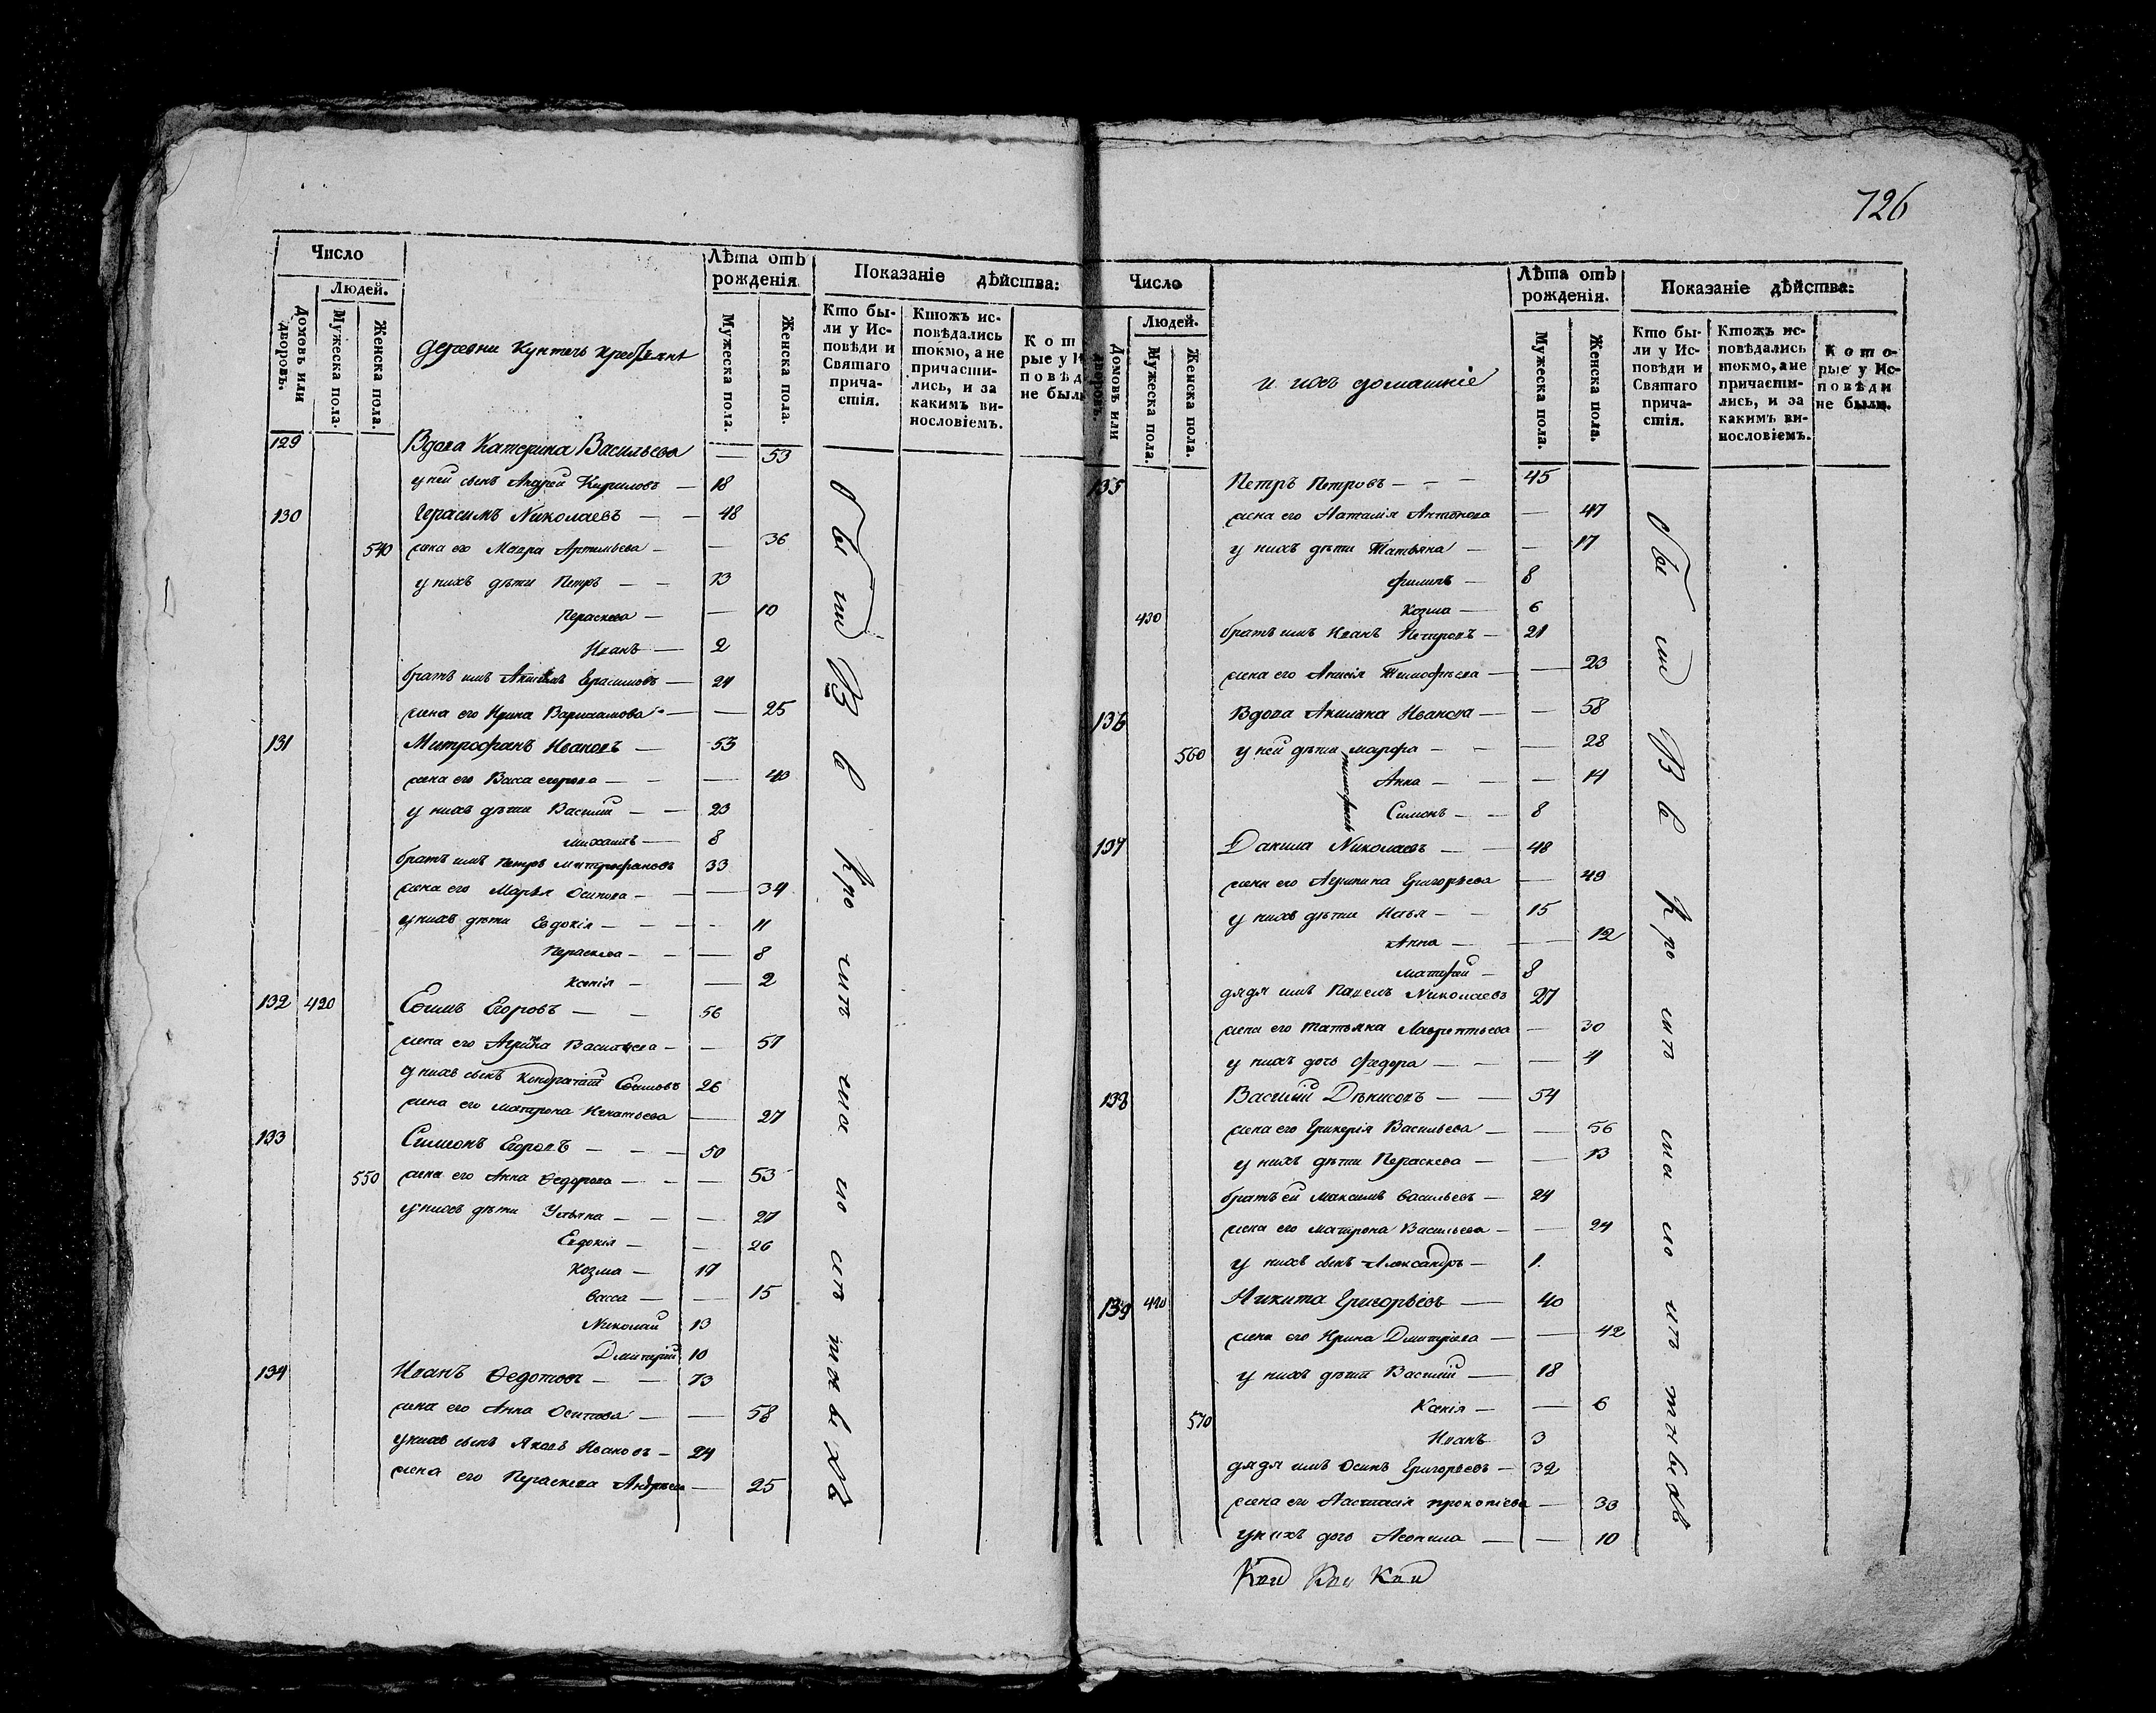 726
Число
Людей.
Домовъ или дворовъ.
Мужеска пола.
Женска пола.
деревни Кунтечь крестьяне
Лѣта отъ рожденія.
Мужеска пола.
Женска пола.
Показаніе дѣйства:
Кто бы-
ли у Ис-
повѣди и
Святаго
прича-
стія.
Ктожъ ис-
повѣдались
токмо, а не
причасти-
лись, и за
какимъ ви-
нословіемъ.
129 Вдова Катерина Васильева — 53
у ней сынъ Андрей Кириловъ — 18
130 Герасимъ Николаевъ — — 48
540 жена его Мавра Артемьева — — 36
у нихъ дѣти Петръ — — 13
Пераскева — — 10
Иванъ — 2
братъ имъ Герасимовъ — 24
жена его Ирина Варлаамова — — 25
131 Митрофанъ Ивановъ — 53
жена его Васса Егорова — — — 40
у нихъ дѣти Василій — — 23
Михаилъ — 8
братъ имъ Петръ Митрофановъ 33
жена его Марья Осипова — — 34
у нихъ дѣти Евдокія — — — 11
Пераскева — — — 8
Ксенія — — 2
132 420 Егоровъ — — 56
жена его Васильева — — 57
у нихъ сынъ Кондратій 26
жена его Матрона Игнатьева — 27
133 Симионъ Егоровъ — — — 50
550 жена его Анна Ѳедорова — — — 53
у нихъ дѣти Ульяна — — — 27
Евдокія — — 26
Козма — 17
Васса — — 15
Николай 13
Дмитрій 10
134 Иванъ Ѳедотовъ — — 73
жена его Анна Осипова — — 58
у нихъ сынъ Яковъ Ивановъ — 24
жена его Пераскева Андреева — 25
Число
Людей.
Домовъ или дворовъ.
Мужеска пола.
Женска пола.
и ихъ домашніе
Лѣта отъ рожденія.
Мужеска пола.
Женска пола.
Показаніе дѣйства:
Кто бы-
ли у Ис-
повѣди и
Святаго
прича-
стія.
Ктожъ ис-
повѣдались
токмо, а не
причасти-
лись, и за
какимъ ви-
нословіемъ.
Кото-
рые у Ис-
повѣди
не были.
135 Петръ Петровъ — — — 45
жена его Наталія Антонова — 47
у нихъ дѣти Татьяна — — 17
Филипъ — 8
430 Козма — 6
братъ имъ Иванъ Петровъ — 21
жена его Анисія Тимофѣева — — 23
136 Вдова Акилина Иванова — — 58
560 у ней дѣти Марфа — — — 28
Анна — — — 14
Симонъ — — 8
137 Данила Николаевъ — — 48
жена его Агрипина Григорьева — 49
у нихъ дѣти Илья — — 15
Анна — — 12
Матфей — 8
дядя имъ Павелъ Николаевъ 27
жена его Татьяна Лаврентьева — 30
у нихъ дочь Ѳедора — — — 4
138 Василій Дѣнисовъ — — 54
жена его Гликерія Васильева — — 56
у нихъ дѣти Пераскева — — 13
братъ ей Максимъ Васильевъ — 24
жена его Матрона Васильева — — 24
у нихъ сынъ Александръ — 1.
139 440 Никита Григорьевъ — 40
жена его Ирина Дмитріева — — 42
у нихъ дѣти Василій — 18
Ксенія — — 6
570 Иванъ 3
дядя имъ Осипъ Григорьевъ — 32
жена его Анастасія Прокопіева — 33
у нихъ дочь Леонила — — 10